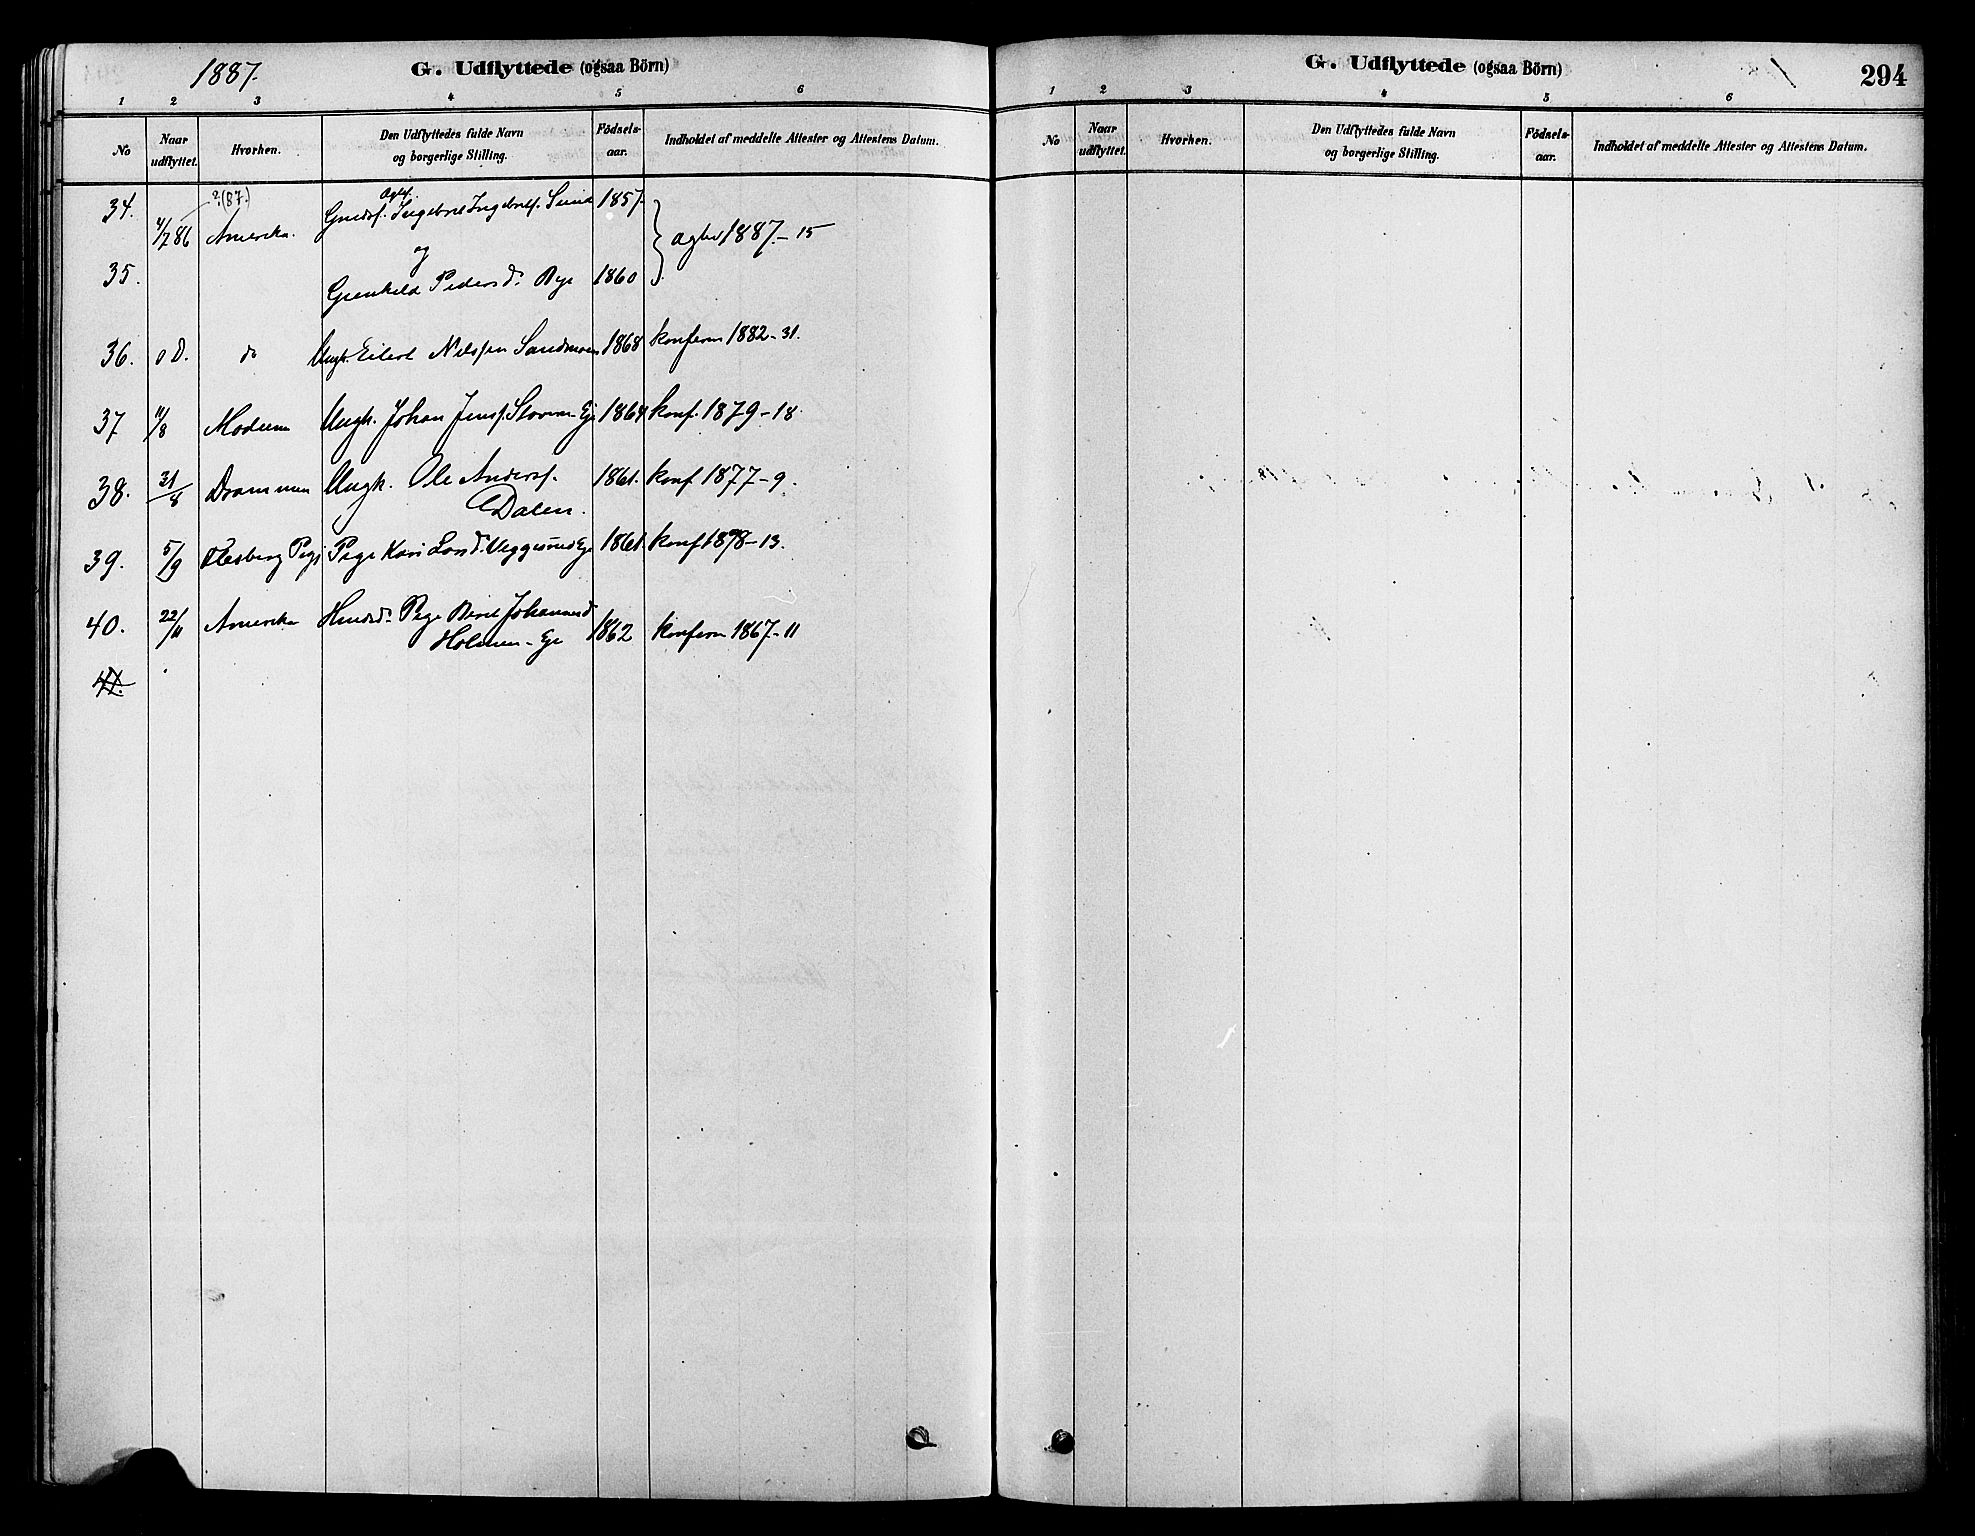 1887.
G. Udflyttede (ogsaa Börn)
1 2 3 4 5 6
No
Naar udflyttet.
Hvorhen.
Den Udflyttedes fulde Navn og borgerlige Stilling.
Födsels-aar.
Indholdet af meddelte Attester og Attestens Datum.
34. 4/7 86 ?(87.) Amerika. Ingebret Ingebretss. 1857.
og } 1887 - 15
35. Gunhild Pedersd. Bye 1860
36. do. do Ungk. Eilert Nilssen Sandmoen 1868 konferm 1882 - 31.
37 11/8 Modum Ungk. Johan Jenss. Eje 1864 konf. 1879 - 18.
38. 31/8 Drammen Ungk. Ole Anderss. 1861. konf 1877 - 9.
Dalen.
39. 5/9 Pige Kari Eje 1861 konf 1878 - 13.
40. 22/11 Amerika Pige Berit Johannesd 1862 konferm 1867 - 11
Holmen - Eje
41.
G. Udflyttede (ogsaa Börn)
294
1 2 3 4 5 6
No
Naar udflyttet.
Hvorhen.
Den Udflyttedes fulde Navn og borgerlige Stilling.
Födsels-aar.
Indholdet af meddelte Attester og Attestens Datum.